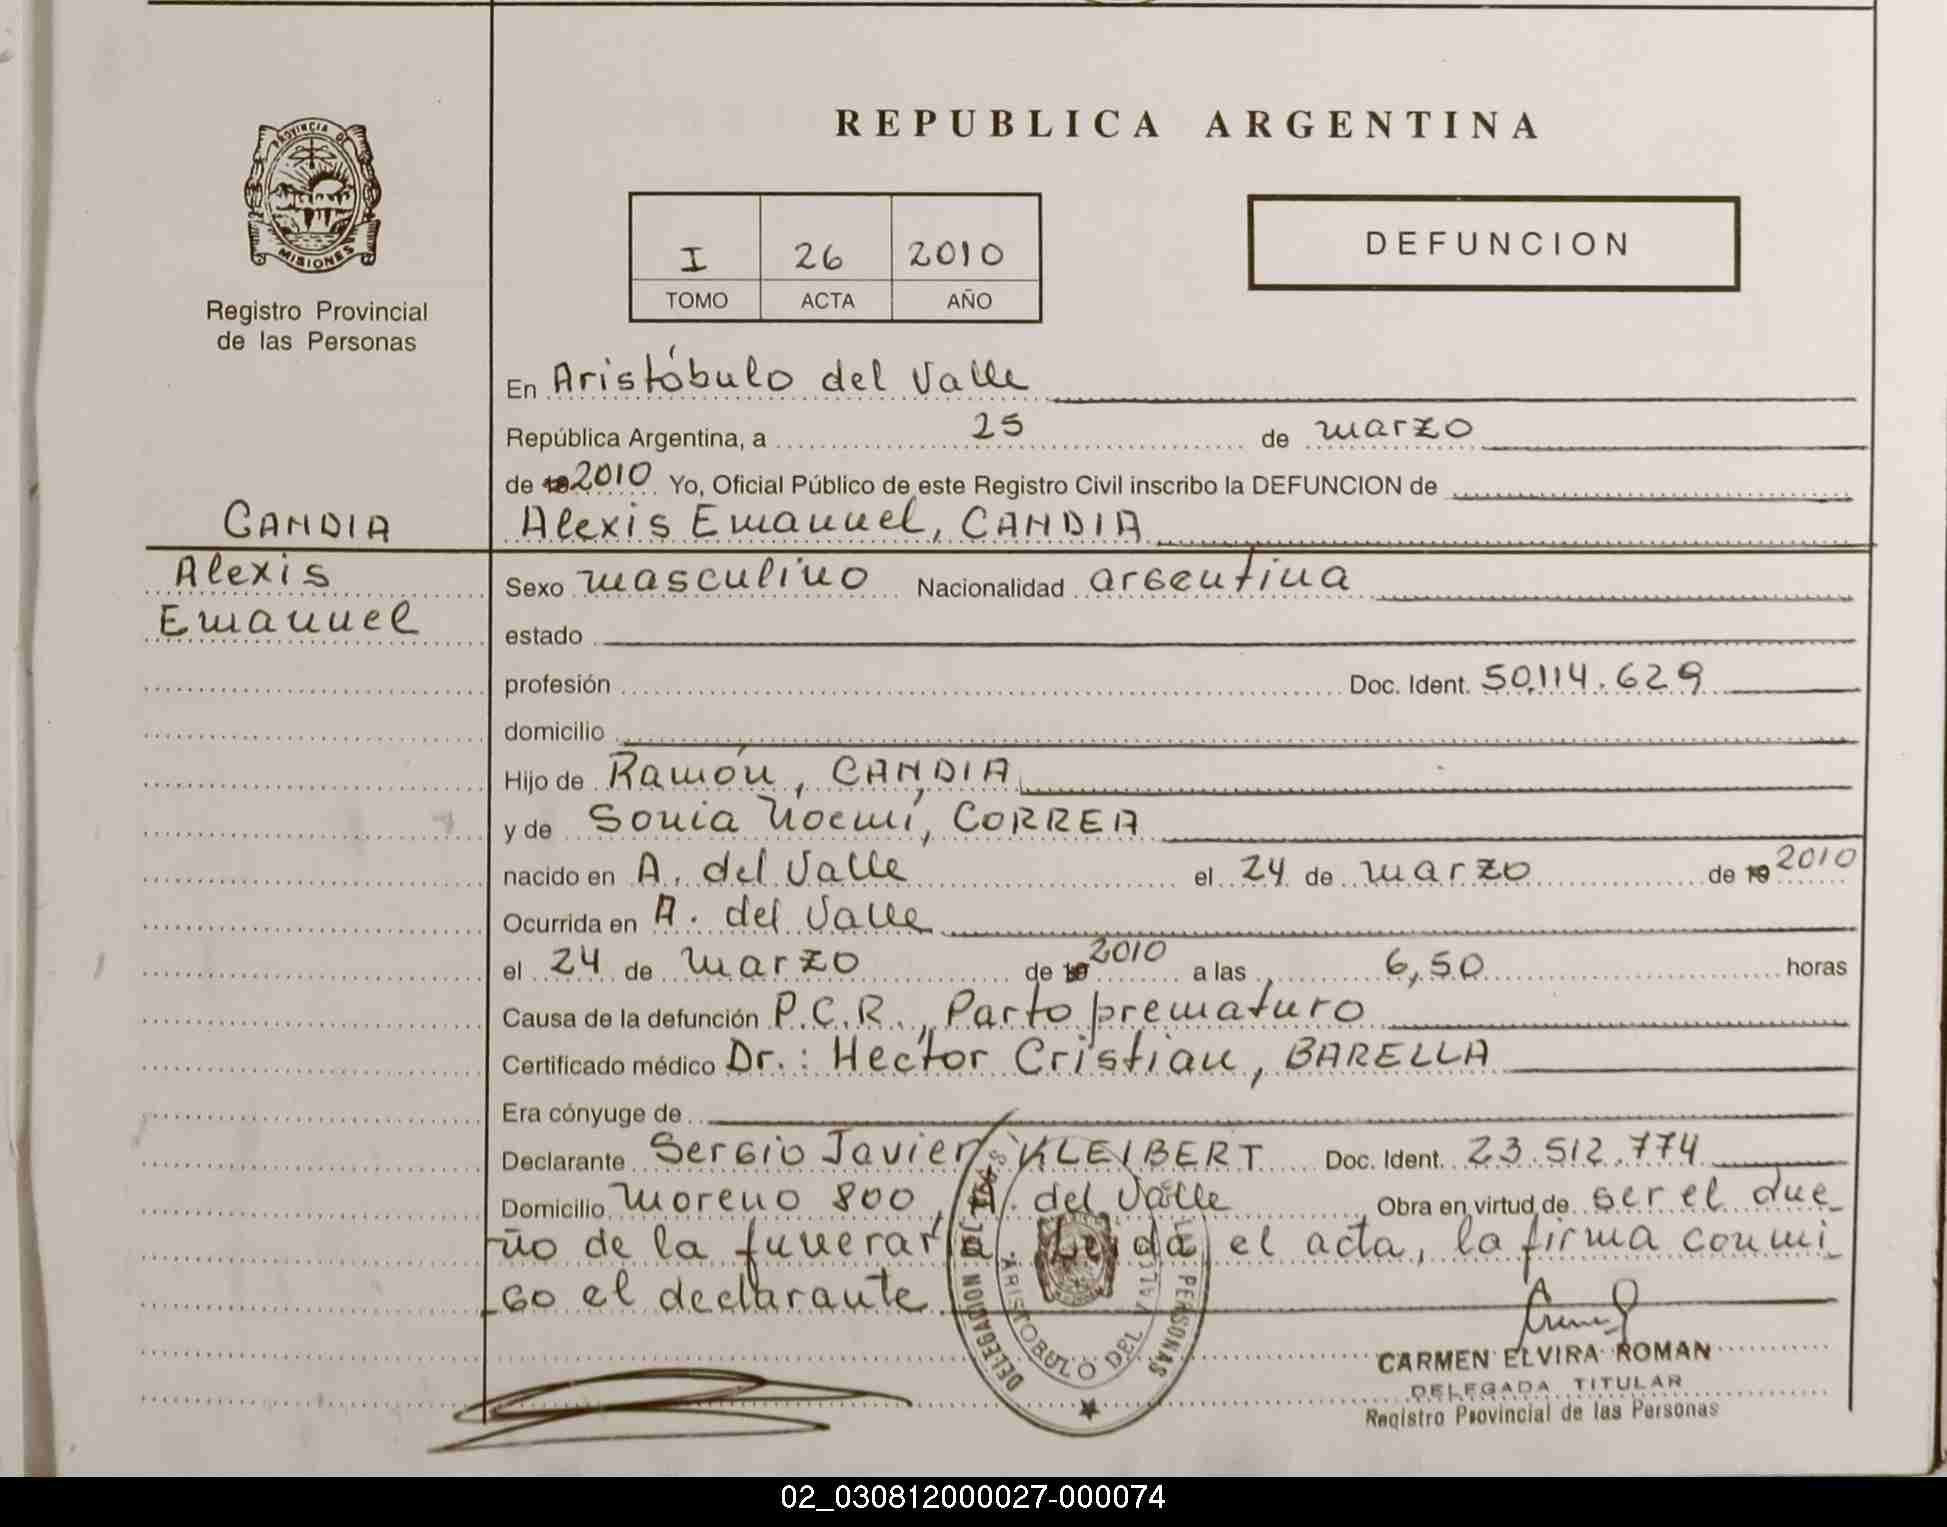 REPUBLICA ARGENTINA
PROVINCIA DE
MISIONES
Registro Provincial
de las Personas
I 26 2010
TOMO ACTA AÑO
DEFUNCION
En Aristóbulo del Valle
República Argentina, a 25 de marzo
de 2010 Yo, Oficial Público de este Registro Civil inscribo la DEFUNCION de
CANDIA
Alexis Emanuel, CANDIA
Alexis
Emanuel
Sexo masculino Nacionalidad argentina
estado
profesión Doc. Ident. 50.114.629
domicilio
Hijo de Ramón, CANDIA
y de Sonia Noemí, CORREA
nacido en A. del Valle el 24 de marzo de 19 2010
Ocurrida en A. del Valle
el 24 de marzo de 19 2010 a las 6,50 horas
Causa de la defunción P.C.R., Parto prematuro
Certificado médico Dr.: Hector Cristian, BARELLA
Era cónyuge de
Declarante Sergio Javier KLEIBERT Doc. Ident. 23.512.774
Domicilio Moreno 800, A. del Valle Obra en virtud de ser el due
ño de la funeraria Leída el acta, la firma conmi
go el declarante
DELEGACION
ARISTOBULO DEL VALLE
PERSONAS
CARMEN ELVIRA ROMAN
DELEGADA TITULAR
Registro Provincial de las Personas
02_030812000027-000074